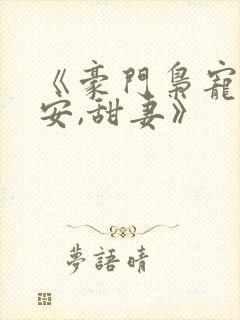 《豪門梟寵
安,甜妻》
夢語晴